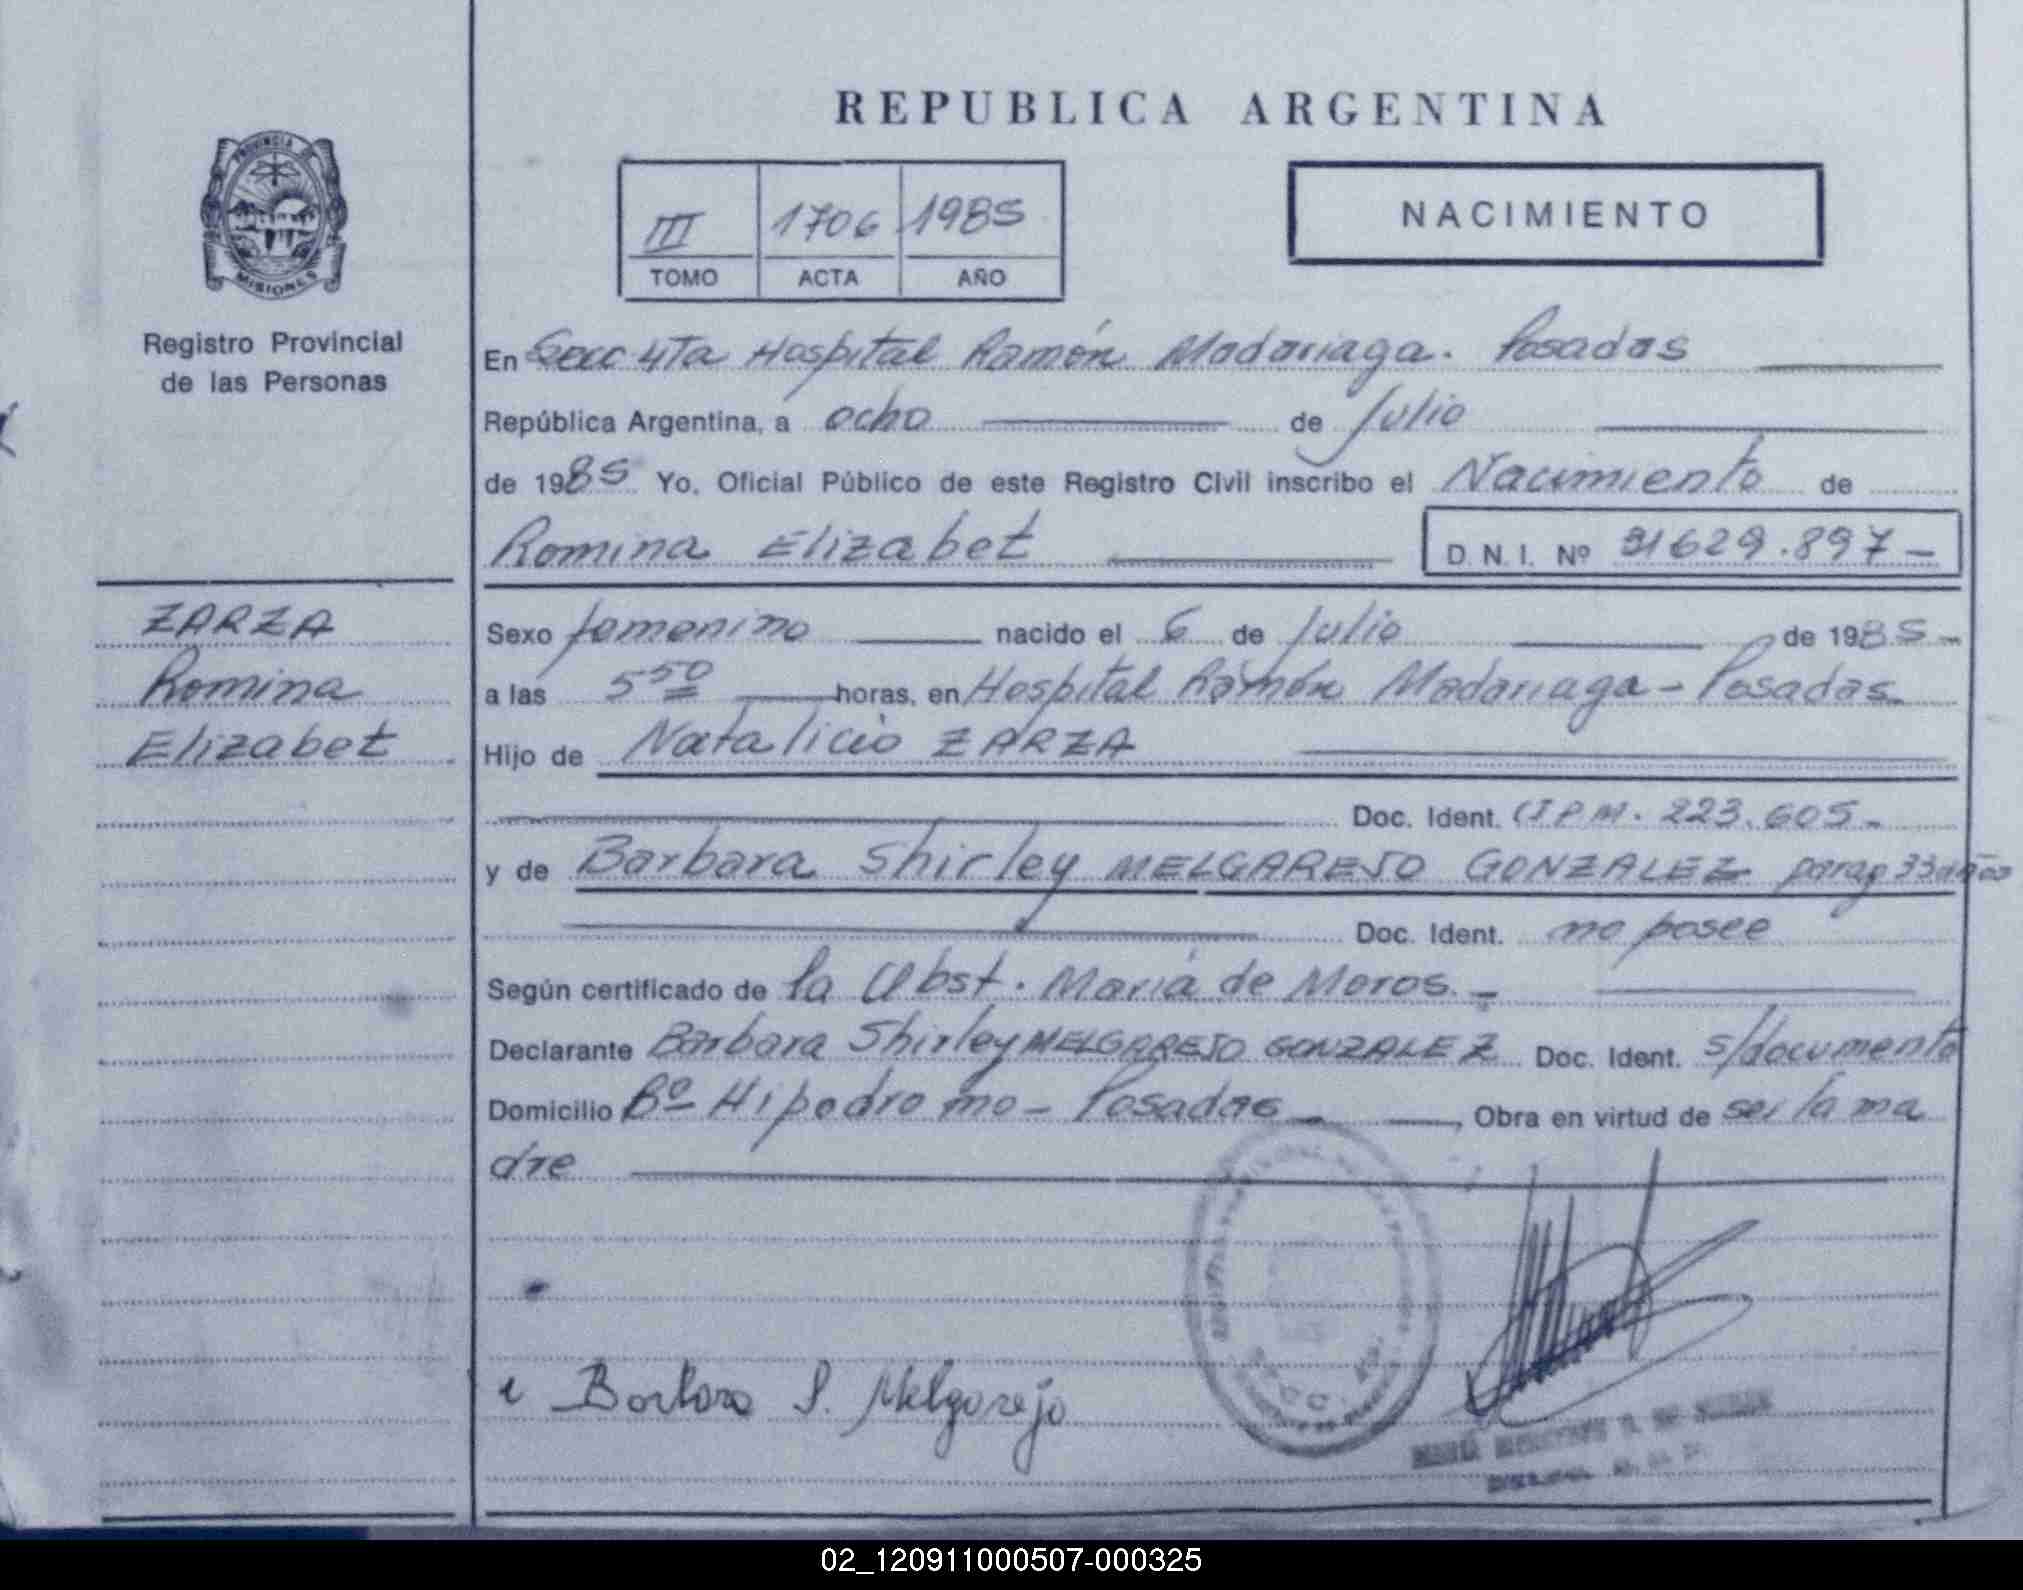 REPUBLICA ARGENTINA
PROVINCIA DE
MISIONES
Registro Provincial
de las Personas
III 1706 1985
TOMO ACTA AÑO
NACIMIENTO
En Secc 4Ta Hospital Ramón Madariaga. Posadas
República Argentina, a ocho de Julio
de 1985 Yo, Oficial Público de este Registro Civil inscribo el Nacimiento de
Romina Elizabet D. N. I. Nº 31629.897-
ZARZA
Romina
Elizabet
Sexo femenino nacido el 6 de Julio de 1985-
a las 5 50 horas, en Hospital Ramón Madariaga - Posadas
Hijo de Natalicio ZARZA
Doc. Ident. CIPM. 223.605-
y de Barbara Shirley MELGAREJO GONZALEZ parag 33 años
Doc. Ident. no posee
Según certificado de la Obst. Maria de Moros. -
Declarante Barbara Shirley MELGAREJO GONZALEZ Doc. Ident. s/documento
Domicilio Bº Hipodromo - Posadas, Obra en virtud de ser la ma
dre
Barbara S. Melgarejo
02_120911000507-000325